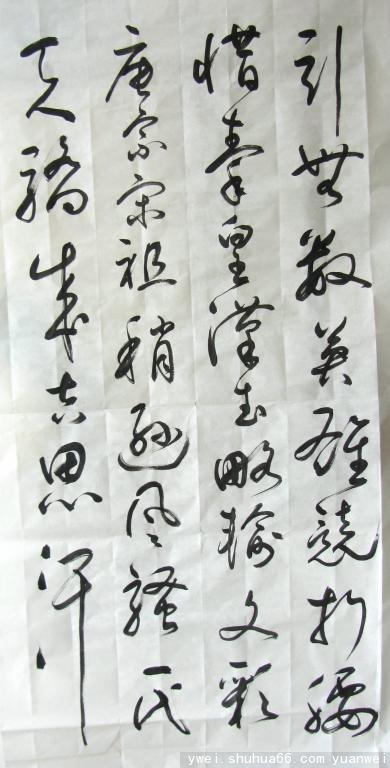 引無數英雄競折腰
惜秦皇漢武略輸文彩
唐宗宋祖稍遜風騷一代
天驕成吉思汗
ywei.shuhua66.com yuanwei